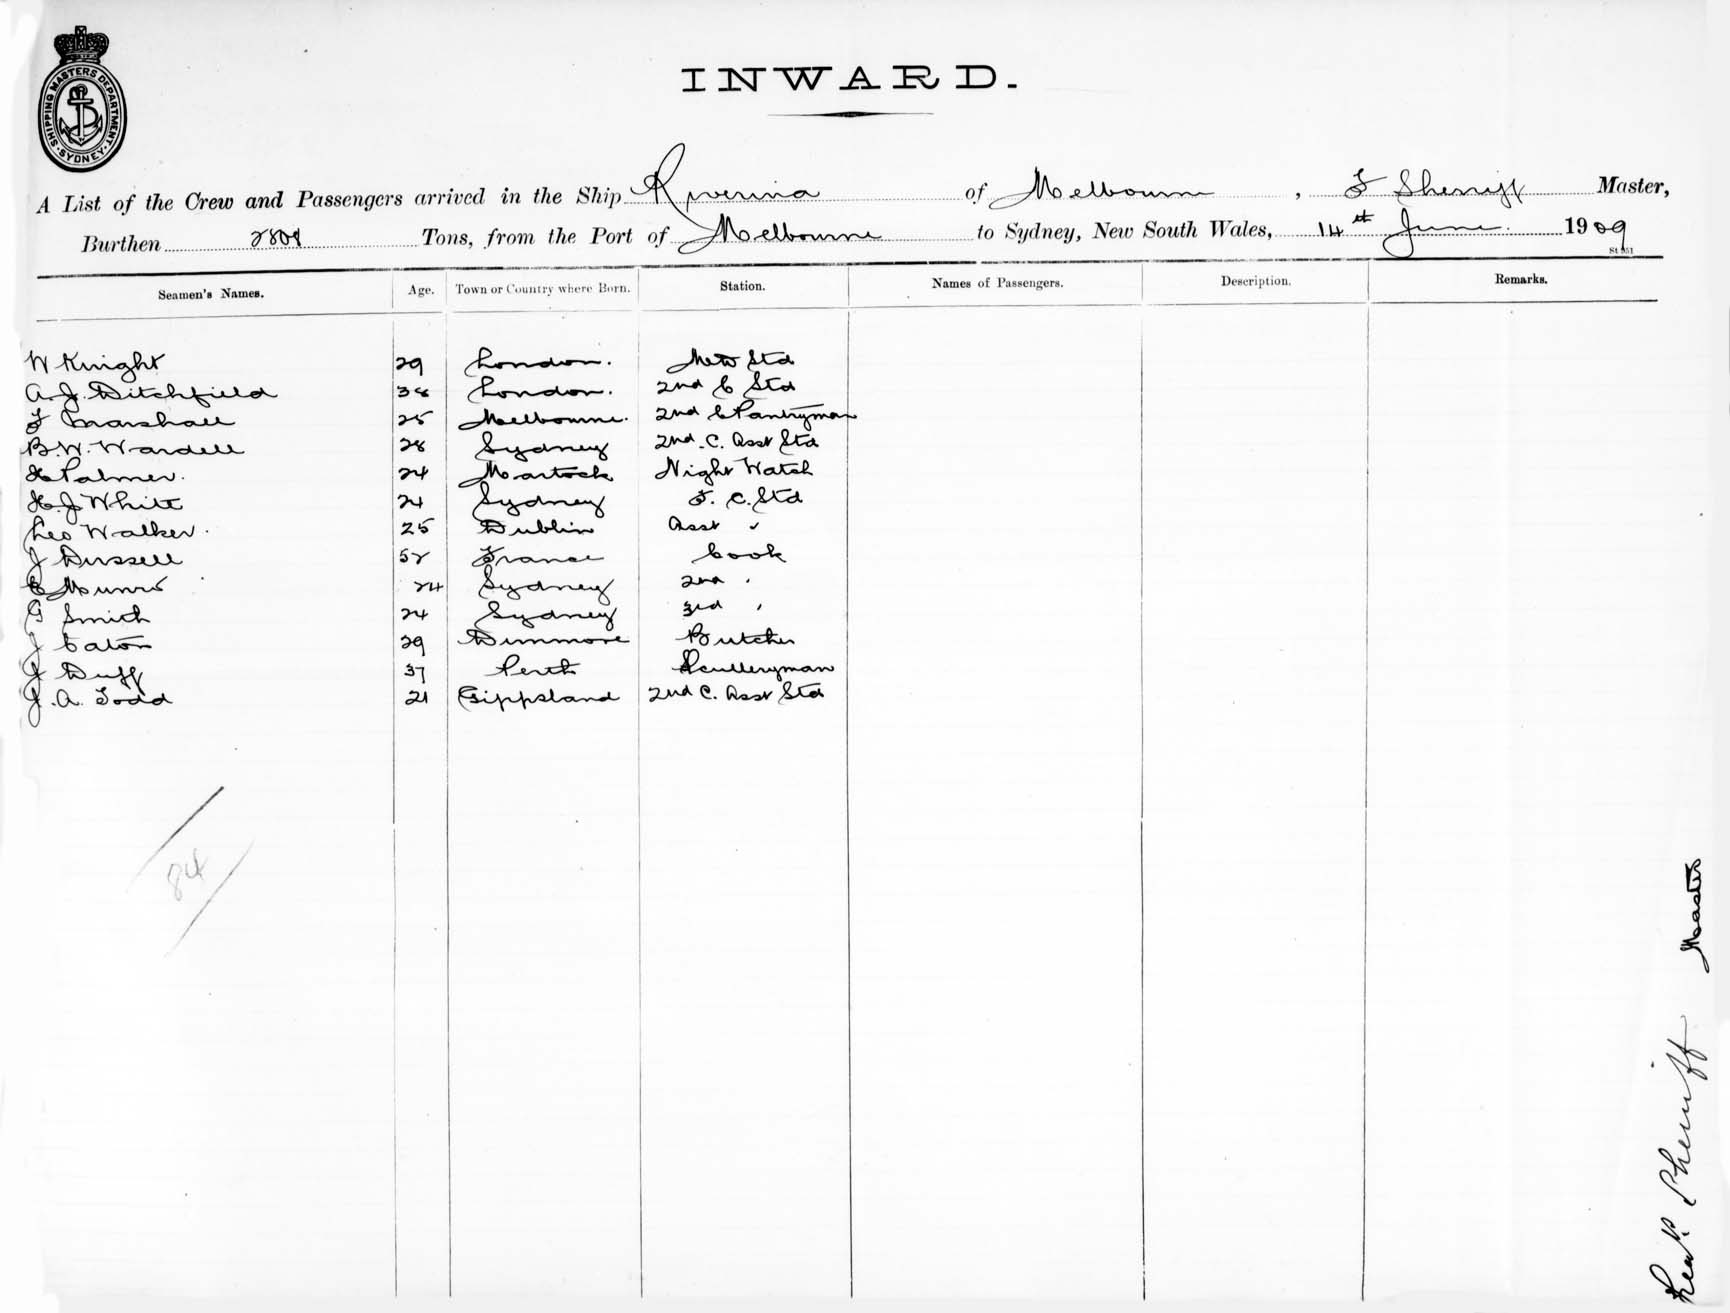 SHIPPING MASTERS DEPARTMENT. SYDNEY.
INWARD.
A List of the Crew and Passengers arrived in the Ship Riverina of Melbourne, F Sherriff Master,
Burthen 2808 Tons, from the Port of Melbourne to Sydney, New South Wales, 14th June 1909
Seamen's Names. Age. Town or Country where Born. Station. Names of Passengers. Description. Remarks.
W Knight 29 London. Std
A. J. Ditchfield 38 London. 2nd C Std
F Marshall 25 Melbourne. 2nd C Pantryman
B. W. Wardell 28 Sydney 2nd. C. Asst Std
H Palmer. 24 Martock Night Watch
H. J White 24 Sydney F. C. Std
Leo Walker. 25 Dublin Asst "
J Dussell 52 France Cook
C Munro 24 Sydney 2nd "
G Smith 24 Sydney 3rd "
J Eaton 29 Dunmore Butcher
J Duff 37 Perth Sculleryman
J. A. Todd 21 Gippsland 2nd C. Asst Std
84
Sherriff Master